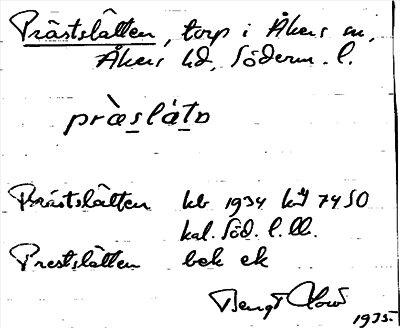 Prästslåtten, torp i Åkers sn,
Åkers hd, Söderm. l.
Prästslåtten kb 1934
kal. Söd. l. ll.
Prestslåtten bek ek
Bengt
1935